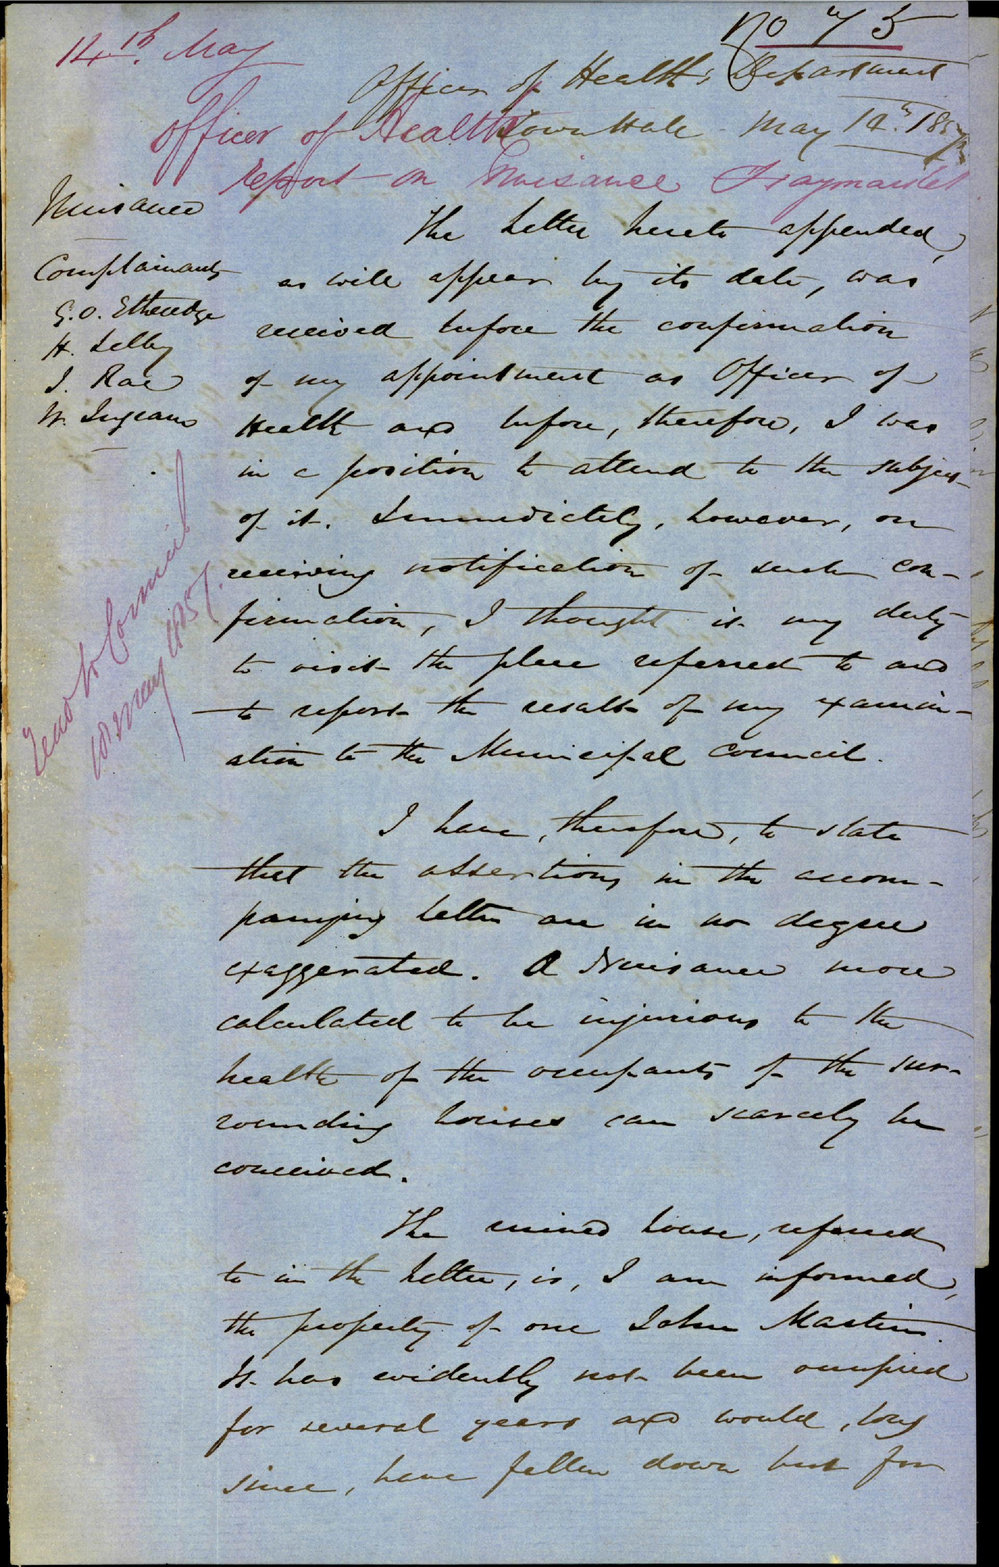 No 75
14th May
Officer of Health's Department
Town Hall May 14th 1857
Officer of Health
report on Nuisance Haymarket
Nuisance
Complainants
G.O. Etheredge
H. Selby
J. Rae
W. Ingram
Read to Council
18 May 1857.
The letter hereto appended,
as will appear by its date, was
received before the confirmation
of my appointment as Officer of
Health and before, therefore, I was
in a position to attend to the subject
of it. Immediately, however, on
receiving notification of such con-
firmation, I thought it my duty
to visit the place referred to and
to report the result of my examin-
ation to the Municipal Council.
I have, therefore, to state
that the assertions in the accom-
panying letter are in no degree
exaggerated. A Nuisance more
calculated to be injurious to the
health of the occupants of the sur-
rounding houses can scarcely be
conceived.
The ruined house, referred
to in the letter, is, I am informed,
the property of one John Martin.
It has evidently not been occupied
for several years and would, long
since, have fallen down but for